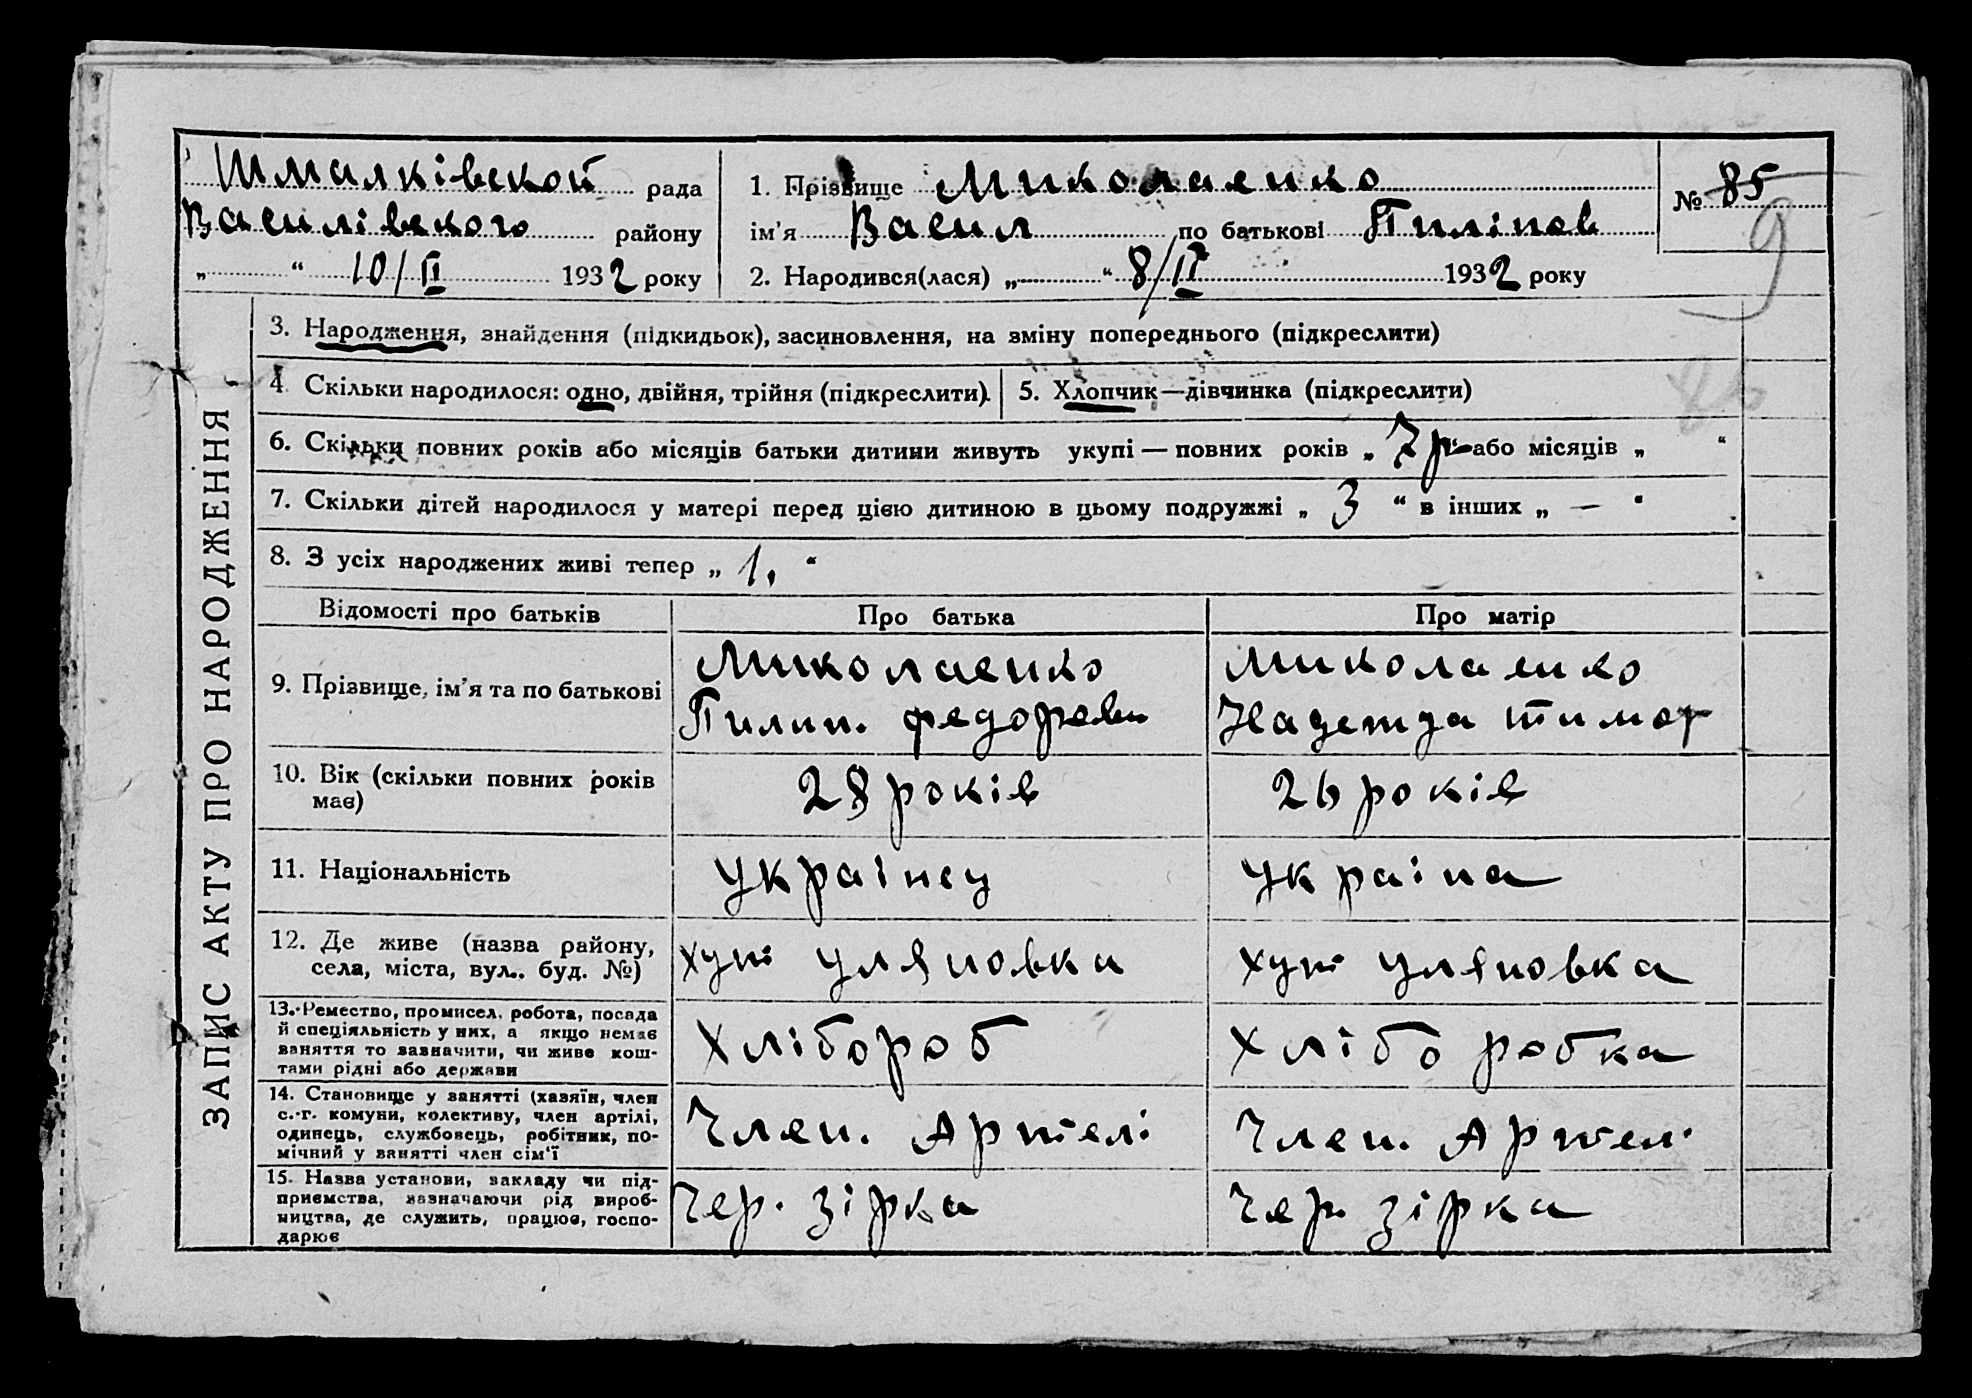 Шмалківской рада
Василівского району
„ “ 10/II 1932 року
1. Прізвище Миколаенко
ім'я Васил по батькові Пиліпов
2. Народився(лася) „ “ 8/II 1932 року
№ 85
9
ЗАПИС АКТУ ПРО НАРОДЖЕННЯ
3. Народження, знайдення (підкидьок), засиновлення, на зміну попереднього (підкреслити)
4. Скільки народилося: одно, двійня, трійня (підкреслити).
5. Хлопчик—дівчинка (підкреслити)
6. Скільки повних років або місяців батьки дитини живуть укупі — повних років „ 7 р. або місяців „ “
7. Скільки дітей народилося у матері перед цією дитиною в цьому подружжі „ 3 “ в інших „ — “
8. З усіх народжених живі тепер „ 1. “
Відомості про батьків
Про батька
Про матір
9. Прізвище, ім'я та по батькові
Миколаенко
Пилип. федорови
Миколаенко
Надежда тимоф
10. Вік (скільки повних років
має)
28 років
26 років
11. Національність
українец
україна
12. Де живе (назва району,
села, міста, вул., буд. №)
хут уляновка
хут уляновка
13. Ремество, промисел, робота, посада
й спеціяльність у них, а якщо немає
заняття то зазначити, чи живе кош-
тами рідні або держави
Хлібороб
Хліборобка
14. Становище у занятті (хазяїн, член
с.-г. комуни, колективу, член артілі,
одинець, службовець, робітник, по-
мічний у занятті член сім'ї
Член. Артелі
Член. Артелі
15. Назва установи, закладу чи під-
приємства, зазначаючи рід вироб-
ництва, де служить, працює, госпо-
дарює
Чер. зірка
Чер. зірка